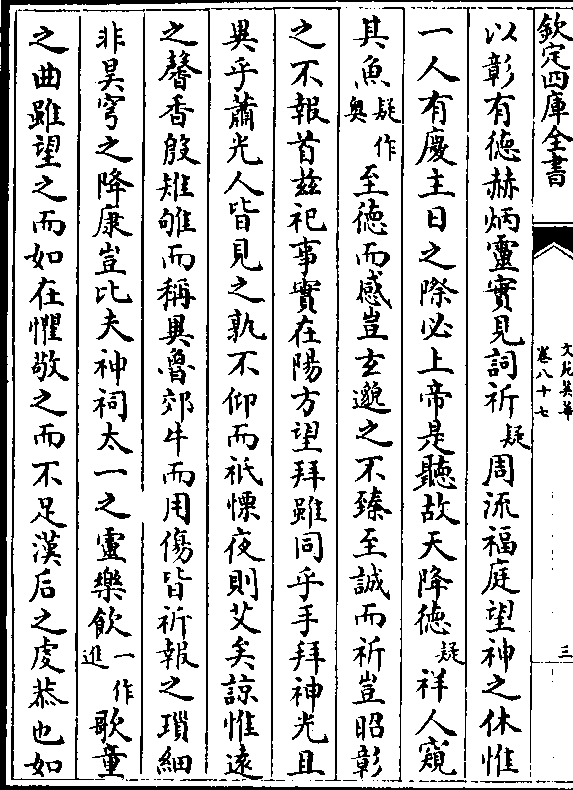 欽定四庫全書
文苑英華
卷八十七
三
以彰有德赫炳靈實見詞祈疑周流福庭望神之休惟
一人有慶主日之際必上帝是聽故天降德疑祥人窺
其魚疑作奥至德而感豈玄邈之不臻至誠而祈豈昭彰
之不報首茲祀事實在陽方望拜雖同乎手拜神光且
異乎蕭光人皆見之孰不仰而祇慄夜則艾矣諒惟遠
之馨香殷雉雊而稱異魯郊牛而用傷皆祈報之瑣細
非昊穹之降康豈比夫神祠太一之靈樂飲一作進歌童
之曲雖望之而如在懼敬之而不足漢后之虔恭也如